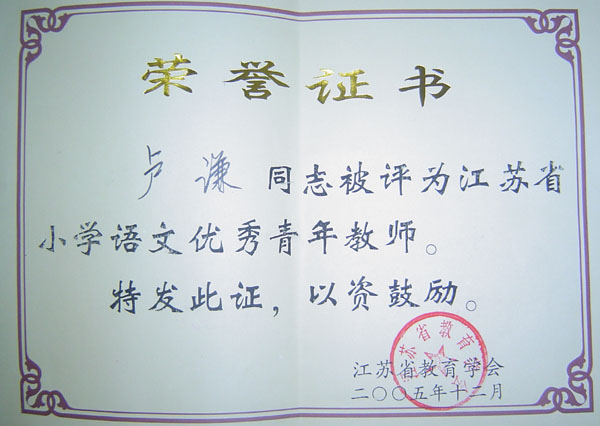 荣誉证书
卢谦 同志被评为江苏省
小学语文优秀青年教师。
特发此证，以资鼓励。
江苏省教育学会
二〇〇五年十二月